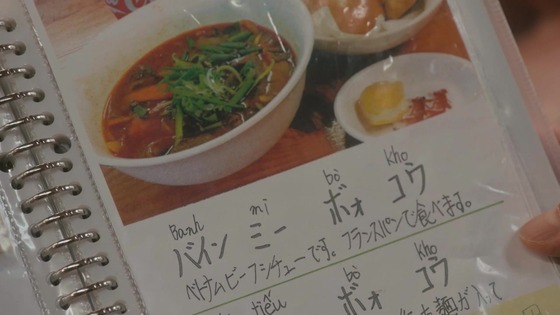 Banh mi bò kho
バイン ミー ボォ コウ
ベトナムビーフシチューです。フランスパンで食べます。
tiếu bò kho
ボォ コウ
麺が入って